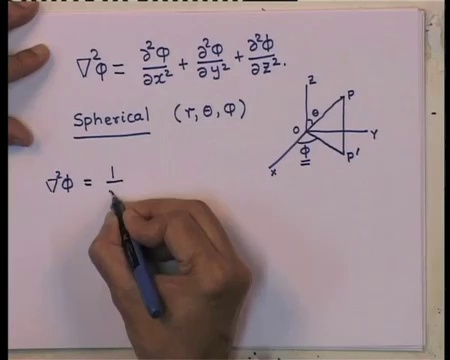 ∇²φ = ∂²φ/∂x² + ∂²φ/∂y² + ∂²φ/∂z².
Spherical (r, θ, φ)
Z
P
θ
O
Y
φ
P'
X
∇²φ = 1